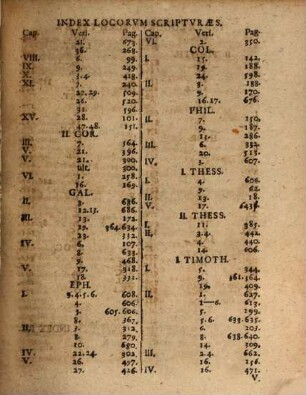 INDEX LOCORVM SCRIPTVRÆS.
Cap. Vers. Pag.
21. 673.
36. 268.
VIII. 6. 99.
IX. 9. 249.
X. 3.4. 418.
XI. 7. 240.
27. 29. 509.
26. 520.
31. 596.
XV. 28. 101.
47.48. 151.
II. COR.
III. 7. 564.
V. 21. 396.
V. 21. 300.
ult. 300.
VI. 1. 258.
16. 269.
GAL.
II. 3. 686.
12.15. 686.
III. 13. 172.
19. 364.634.
23. 332.
IV. 6. 107.
8. 633.
9. 468.
V. 17. 318.
18. 332.
EPH.
I. 3.4.5.6. 608.
4. 606.
5. 605.606.
8. 367.
II. 3. 312.
8. 279.
10. 680.
IV. 22.24. 302.
V. 26. 497.
27. 426.
Cap. Vers. Pag.
VI. 2. 350.
COL.
I. 15. 142.
19. 188.
24. 598.
II. 3. 188.
9. 170.
16.17. 676.
PHIL.
II. 7. 150.
9. 187.
13. 286.
III. 6. 332.
20. 518.
IV. 3. 607.
I. THESS.
I. 4. 606.
9. 62.
II. 13. 18.
V. 17. 643.
II. THESS.
I. 11. 385.
II. 3.4. 442.
4. 440.
14. 606.
I. TIMOTH.
I. 5. 344.
9. 361.364.
19. 409.
II. 1. 627.
1—6. 613.
5. 199.
5.6. 633.635.
6. 203.
8. 638.640.
14. 309.
III. 2.4. 662.
16. 154.
IV. 16. 471.
V.